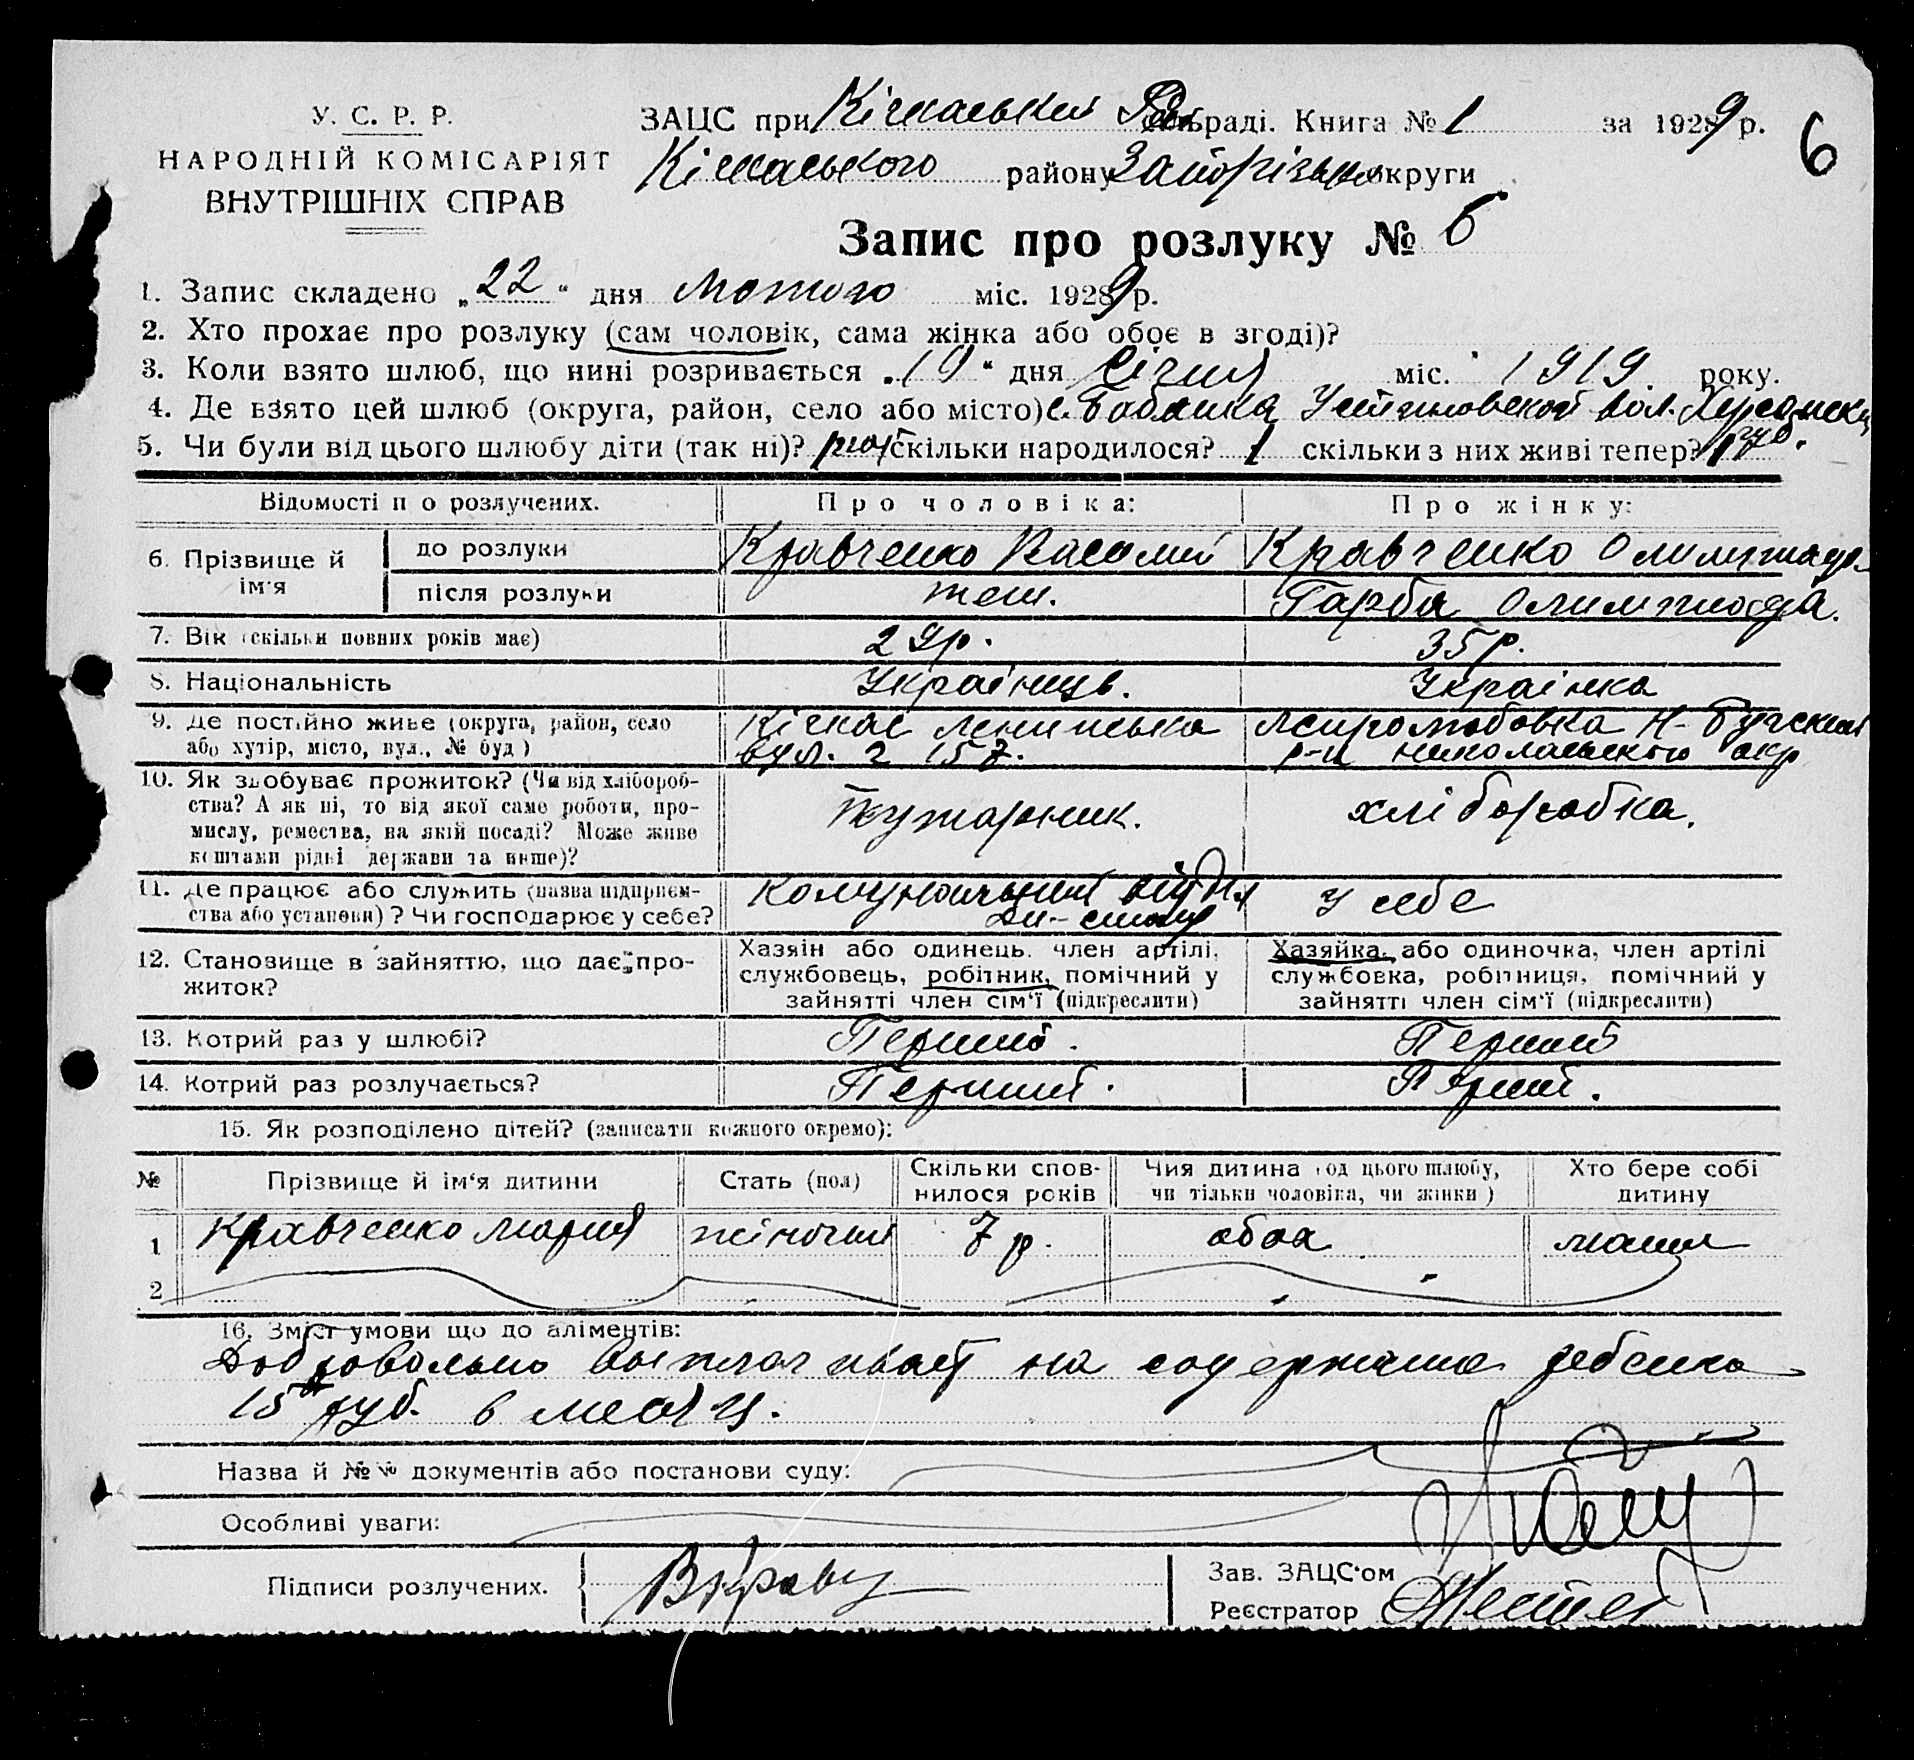 У. С. Р. Р.
НАРОДНІЙ КОМІСАРІЯТ
ВНУТРІШНІХ СПРАВ
ЗАЦС при Кічкаський раді. Книга № 1 за 1929 р.
6
Кічкаського району Запорізько округи
Запис про розлуку № 6
1. Запис складено „22“ дня Лютого міс. 1929 р.
2. Хто прохає про розлуку (сам чоловік, сама жінка або обоє в згоді)?
3. Коли взято шлюб, що нині розривається „19“ дня Січня міс. 1919 року.
4. Де взято цей шлюб (округа, район, село або місто) с. Бобли­нка вол. Херсонск
5. Чи були від цього шлюбу діти (так ні)? скільки народилося? 1 скільки з них живі тепер? 1 губ.
Відомості п о розлучених.
Про чоловіка:
Про жінку:
6. Прізвище й ім'я
до розлуки
Кравченко Василий
Кравченко Олимпиада
після розлуки
теш.
Гарба Олимпиада.
7. Вік (скільки повних років має)
29р.
35р.
8. Національність
Українець.
Українка
9. Де постійно живе (округа, район, село
або хутір, місто, вул., № буд)
Кічкас Ленинська
вул. 2 157.
Н-Бугский
р-н николаевского окр
10. Як здобуває прожиток? (Чи від хлібороб-
ства? А як ні, то від якої саме роботи, про-
мислу, ремества, на якій посаді? Може живе
коштами рідні держави та инше)?
хліборобка.
11. Де працює або служить (назва підприєм-
ства або установи)? Чи господарює у себе?
Комунальний відділ
у себе
12. Становище в зайняттю, що дає про-
житок?
Хазяін або одинець, член артілі,
службовець, робітник, помічний у
зайнятті член сім'ї (підкреслити)
Хазяйка, або одиночка, член артілі
службовка, робітниця, помічний у
зайнятті член сім'ї (підкреслити)
13. Котрий раз у шлюбі?
Перший.
Перший
14. Котрий раз розлучається?
Перший.
Перший.
15. Як розподілено дітей? (записати кожного окремо):
№
Прізвище й ім'я дитини
Стать (пол)
Скільки спов-
нилося років
Чия дитина (од цього шлюбу,
чи тільки чоловіка, чи жінки)
Хто бере собі
дитину
1
Кравченко Мария
жіночий
7 р.
обох
мати
2
16. Зміст умови що до аліментів:
Добровольно выплачивает на содержание ребенка
15 руб. в месяц.
Назва й №№ документів або постанови суду:
Особливі уваги:
Підписи розлучених.
ВКравч
Зав. ЗАЦС'ом
Реєстратор